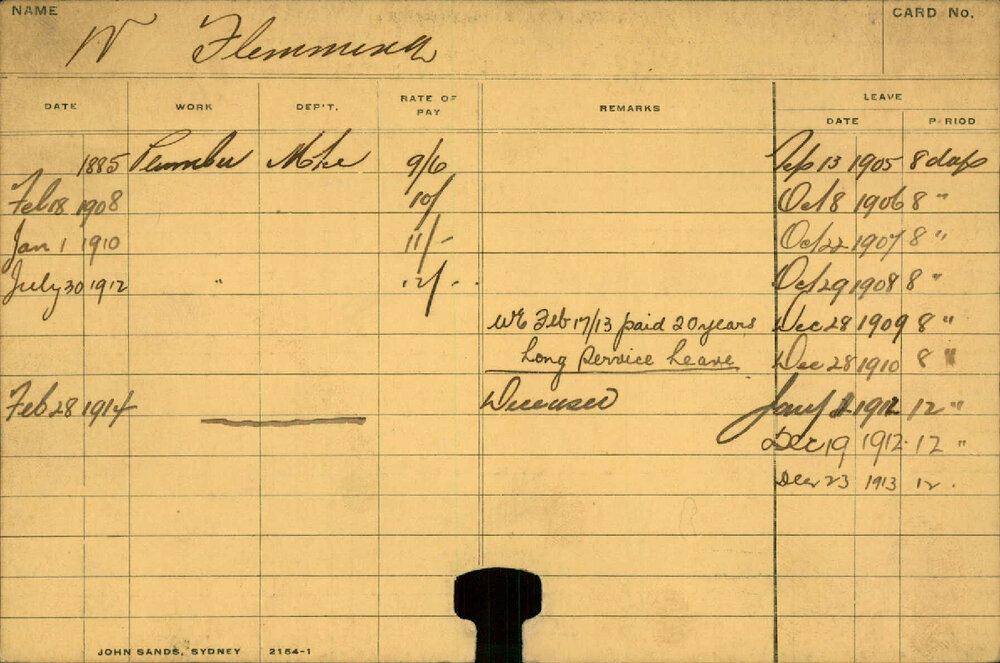 NAME
CARD No.
W Flemming
DATE WORK DEP'T. RATE OF PAY REMARKS LEAVE
DATE PERIOD
1885 Plumber 9/6 Sep 13 1905 8 days
Feb 18 1908 10/ Oct 8 1906 8 "
Jan 1 1910 11/- Oct 22 1907 8 "
July 30 1912 " 12/- Oct 29 1908 8 "
WE Feb 17/13 paid 20 years Dec 28 1909 8 "
Long Service Leave Dec 28 1910 8 "
Feb 28 1914 Deceased Jany 1 1912 12 "
Dec 19 1912 12 "
Dec 23 1913 12 .
JOHN SANDS, SYDNEY 2154-1